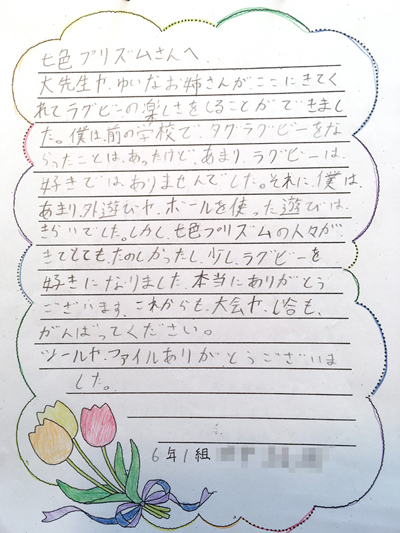 七色プリズムさんへ
大先生や、ゆいなお姉さんが、ここにきてく
れてラグビーの楽しさをしることができまし
た。僕は、前の学校で、タグラグビーをな
らったことは、あったけど、あまり、ラグビーは、
好きでは、ありませんでした。それに、僕は、
あまり、外遊びや、ボールを使った遊びは、
きらいでした。しかし、七色プリズムの人々が、
きてとても、たのしかったし、少し、ラグビーを
好きになりました。本当にありがとう
ございます。これからも、大会や、し合も、
がんばってください。
シールや、ファイルありがとうございま
した。
6年1組